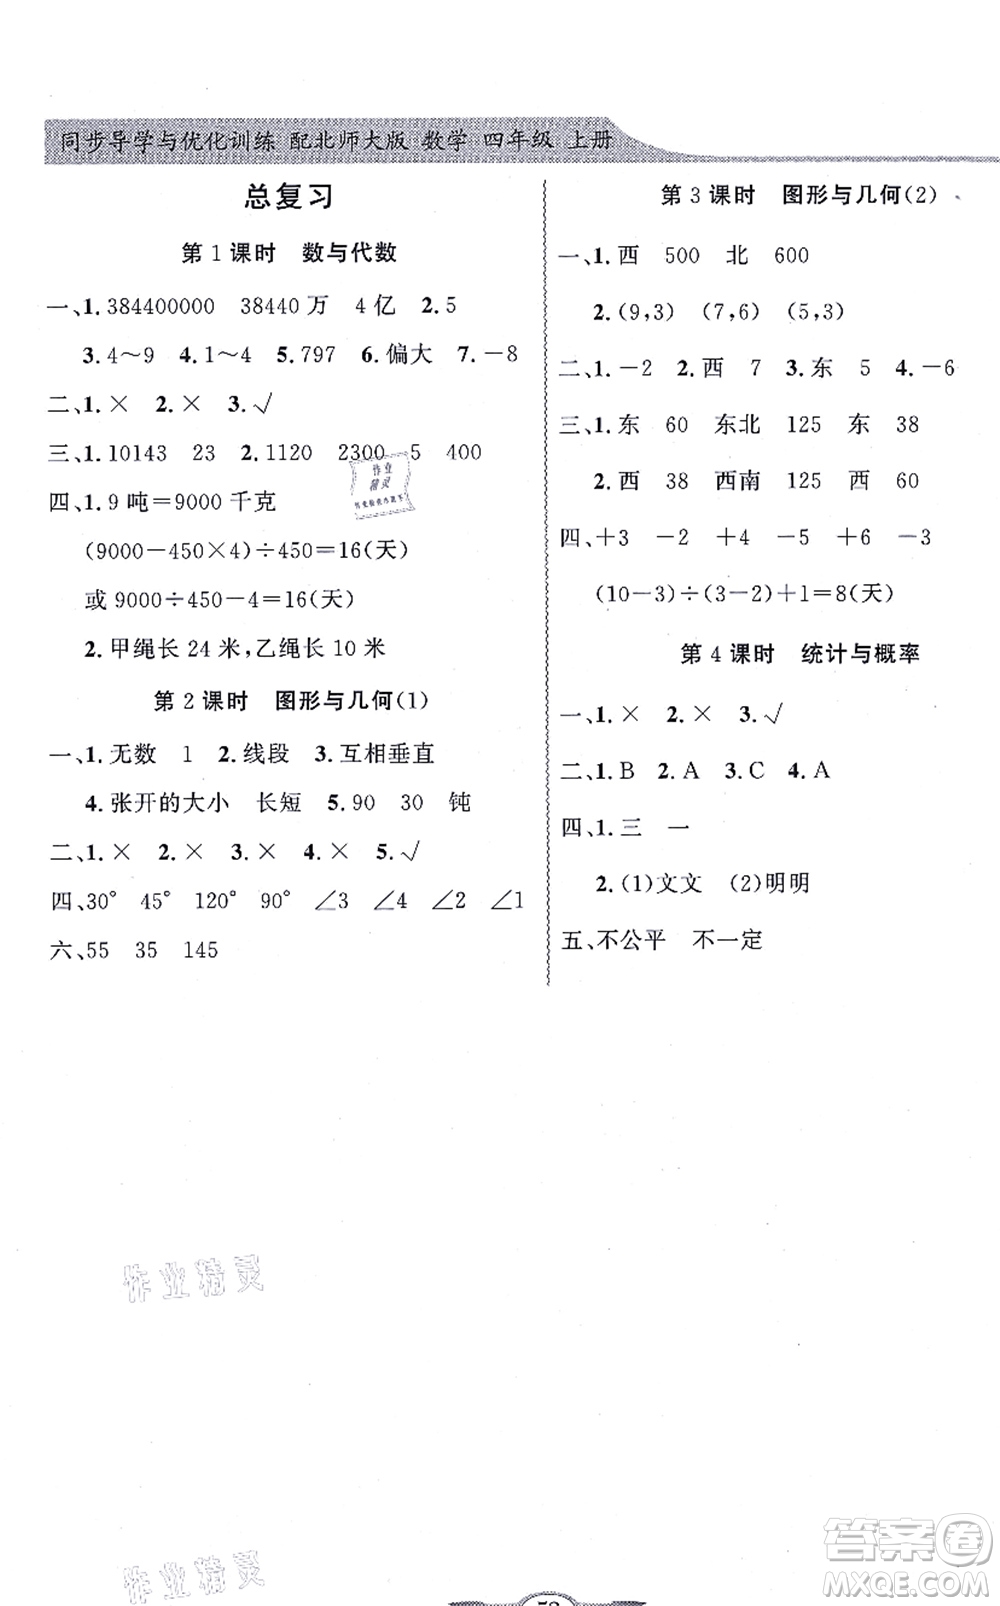 同步导学与优化训练 配北师大版 数学 四年级 上册
总复习
第1课时 数与代数
一、1.384400000 38440万 4亿 2.5
3.4～9 4.1～4 5.797 6.偏大 7.－8
二、1.× 2.× 3.√
三、1.10143 23 2.1120 2300 5 400
四、1.9吨＝9000千克
(9000－450×4)÷450＝16(天)
或9000÷450－4＝16(天)
2.甲绳长24米,乙绳长10米
第2课时 图形与几何(1)
一、1.无数 1 2.线段 3.互相垂直
4.张开的大小 长短 5.90 30 钝
二、1.× 2.× 3.× 4.× 5.√
四、30° 45° 120° 90° ∠3 ∠4 ∠2 ∠1
六、55 35 145
第3课时 图形与几何(2)
一、1.西 500 北 600
2.(9,3) (7,6) (5,3)
二、1.－2 2.西 7 3.东 5 4.－6
三、1.东 60 东北 125 东 38
2.西 38 西南 125 西 60
四、＋3 －2 ＋4 －5 ＋6 －3
(10－3)÷(3－2)＋1＝8(天)
第4课时 统计与概率
一、1.× 2.× 3.√
二、1.B 2.A 3.C 4.A
四、1.三 一
2.(1)文文 (2)明明
五、不公平 不一定
作业
精灵
作业精灵
作业精灵
答案圈
MXQE.COM